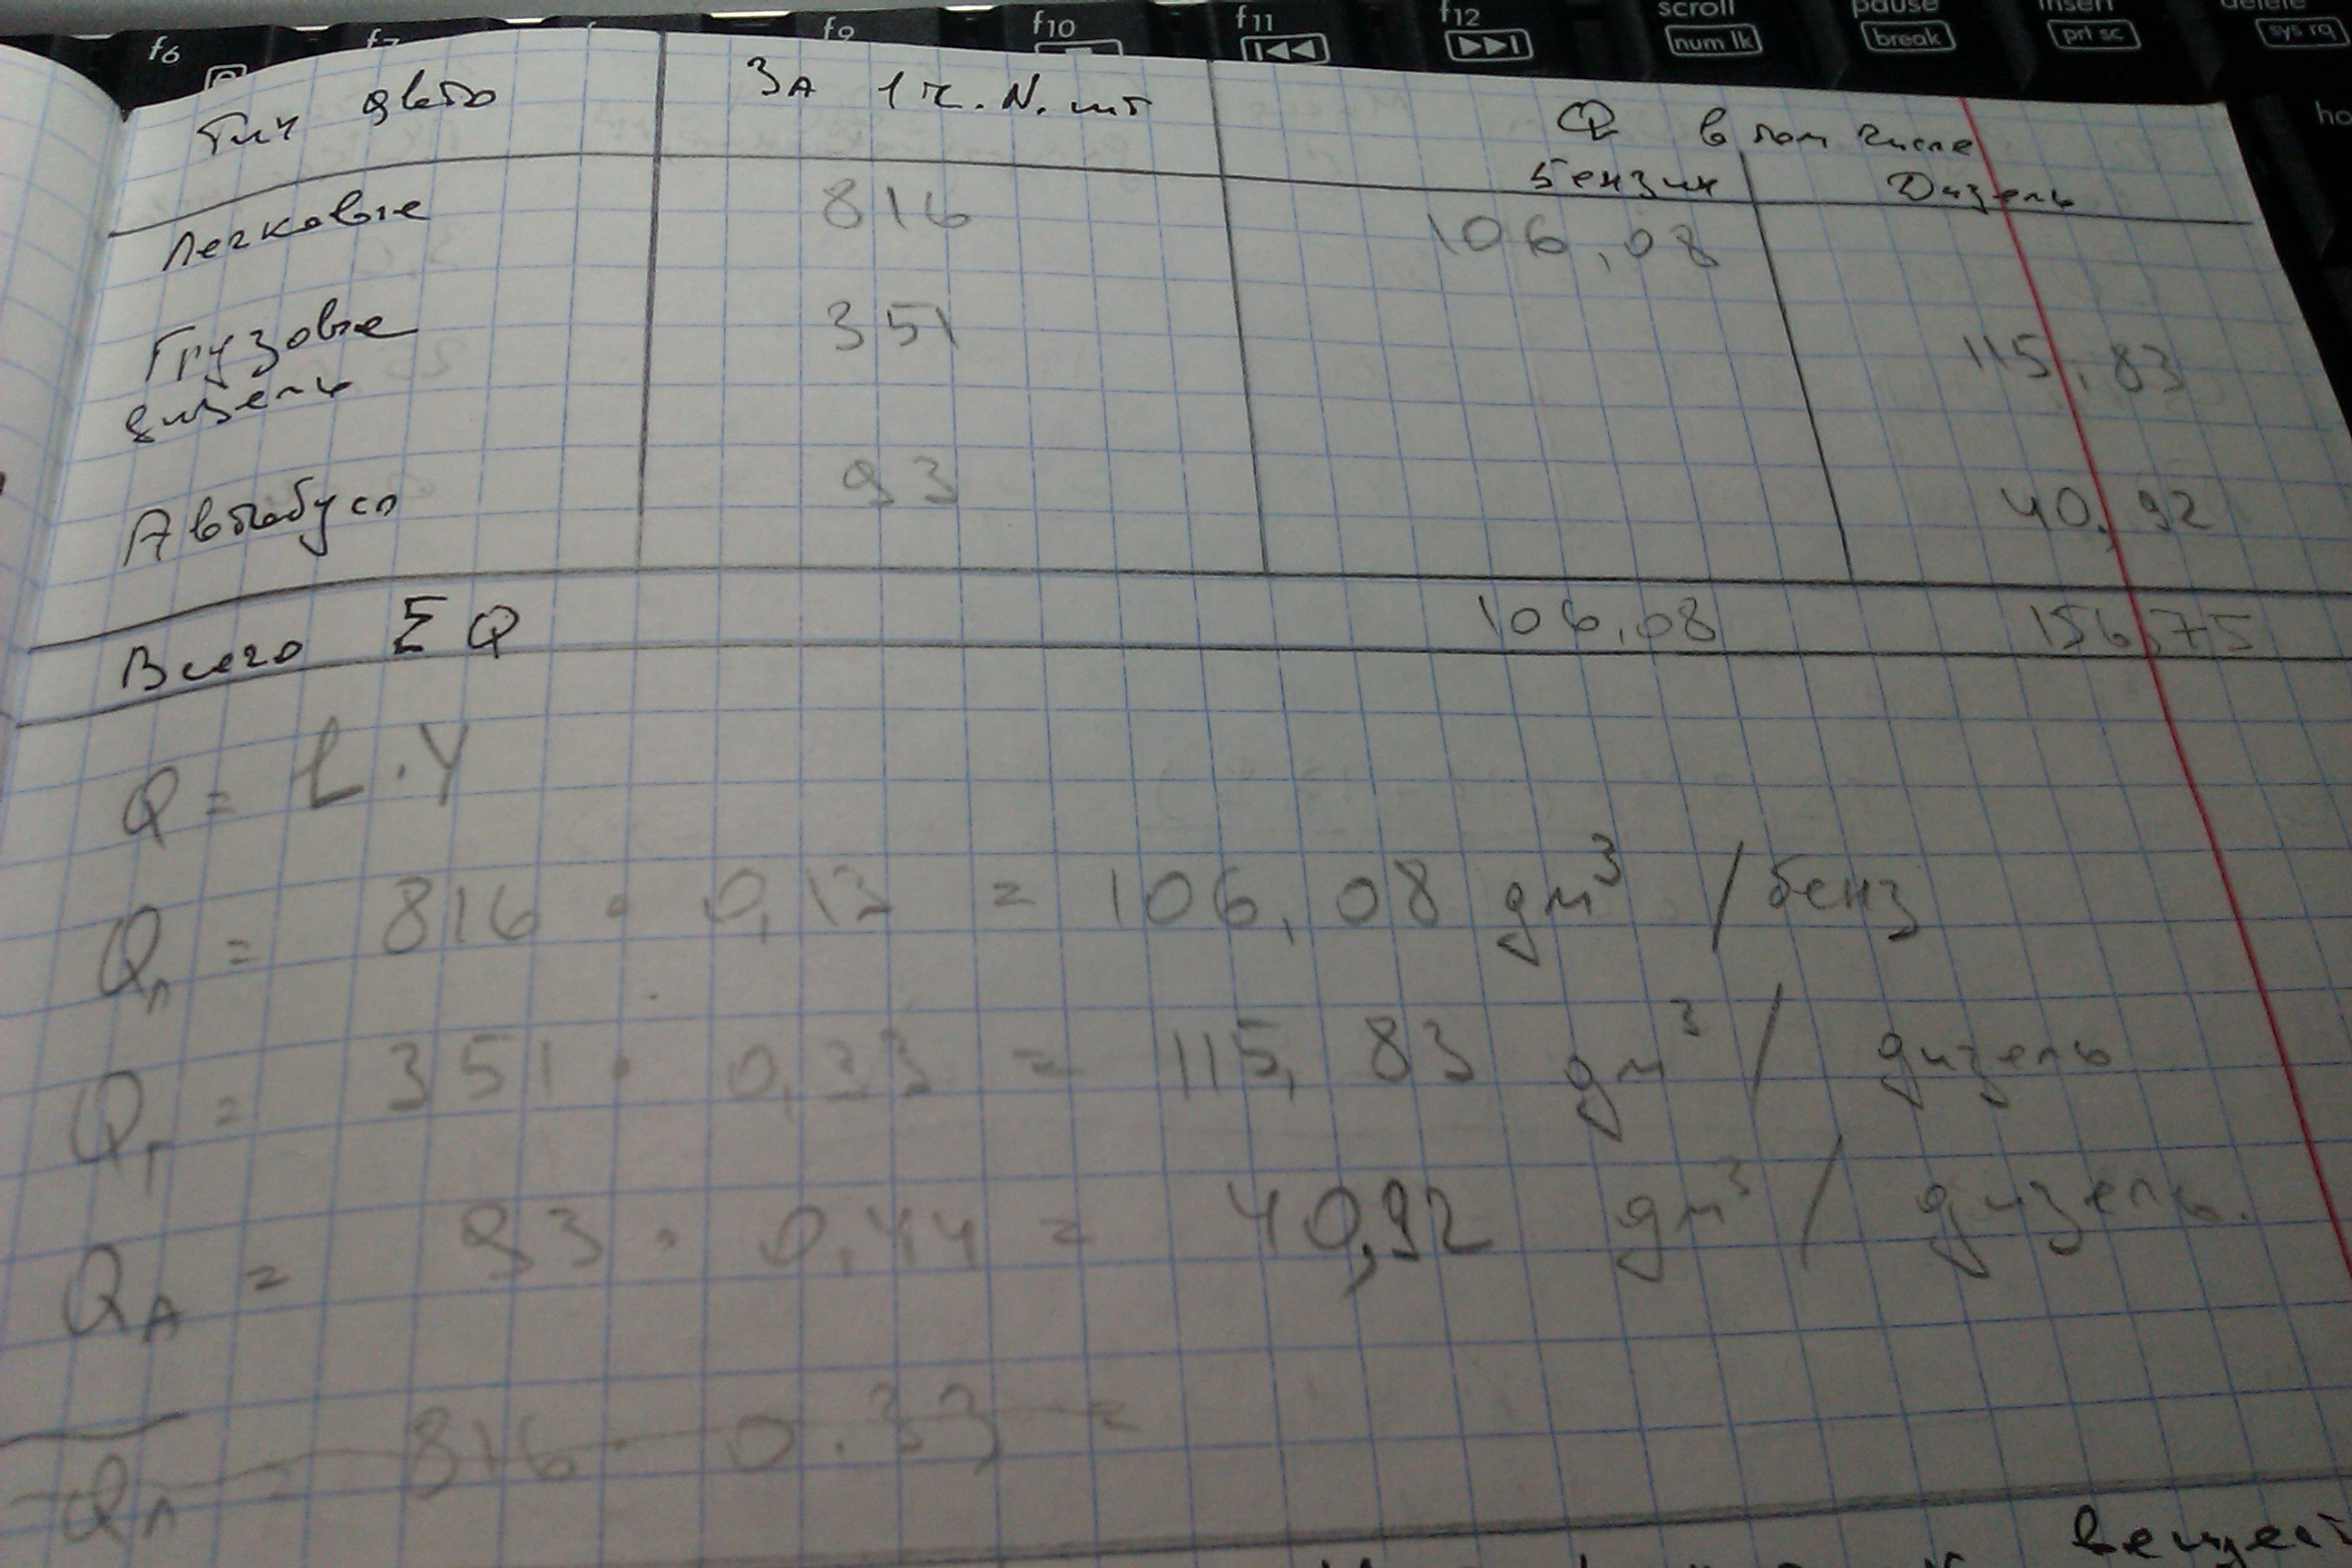 f6 f7 f9 f10 f11 f12 scroll pause insert delete
num lk break prt sc sys rq
ho
Тип авто За 1 ч. N. шт Q в том числе
Бензин Дизель
Легковые 816 106,08
Грузовые 351 115,83
дизель
Автобусы 93 40,92
Всего Σ Q 106,08 156,75
Q = L · Y
Qл = 816 · 0,13 = 106,08 дм³ / бенз
Qг = 351 · 0,33 = 115,83 дм³ / дизель
QА = 93 · 0,44 = 40,92 дм³ / дизель.
Qл = 816 · 0.33 =
вещест